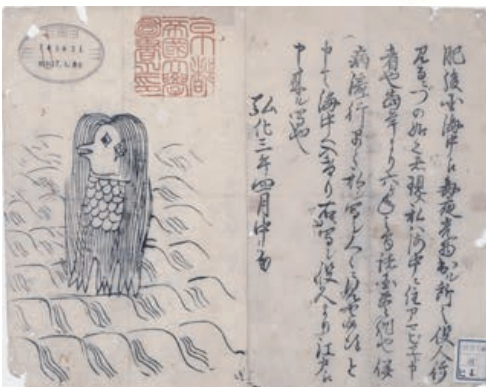 肥後国海中江毎夜光物出ル所之役人行
見るニづの如之者現ス私ハ海中ニ住アマビヱト申
者也当年より六ケ年之間諸国豊作也併
病流行早々私ヲ写シ人々ニ見セ候得と
申て海中へ入けり右写シ役人より江戸江
申来ル写也
弘化三年四月中旬
京都
帝國大學
圖書之印